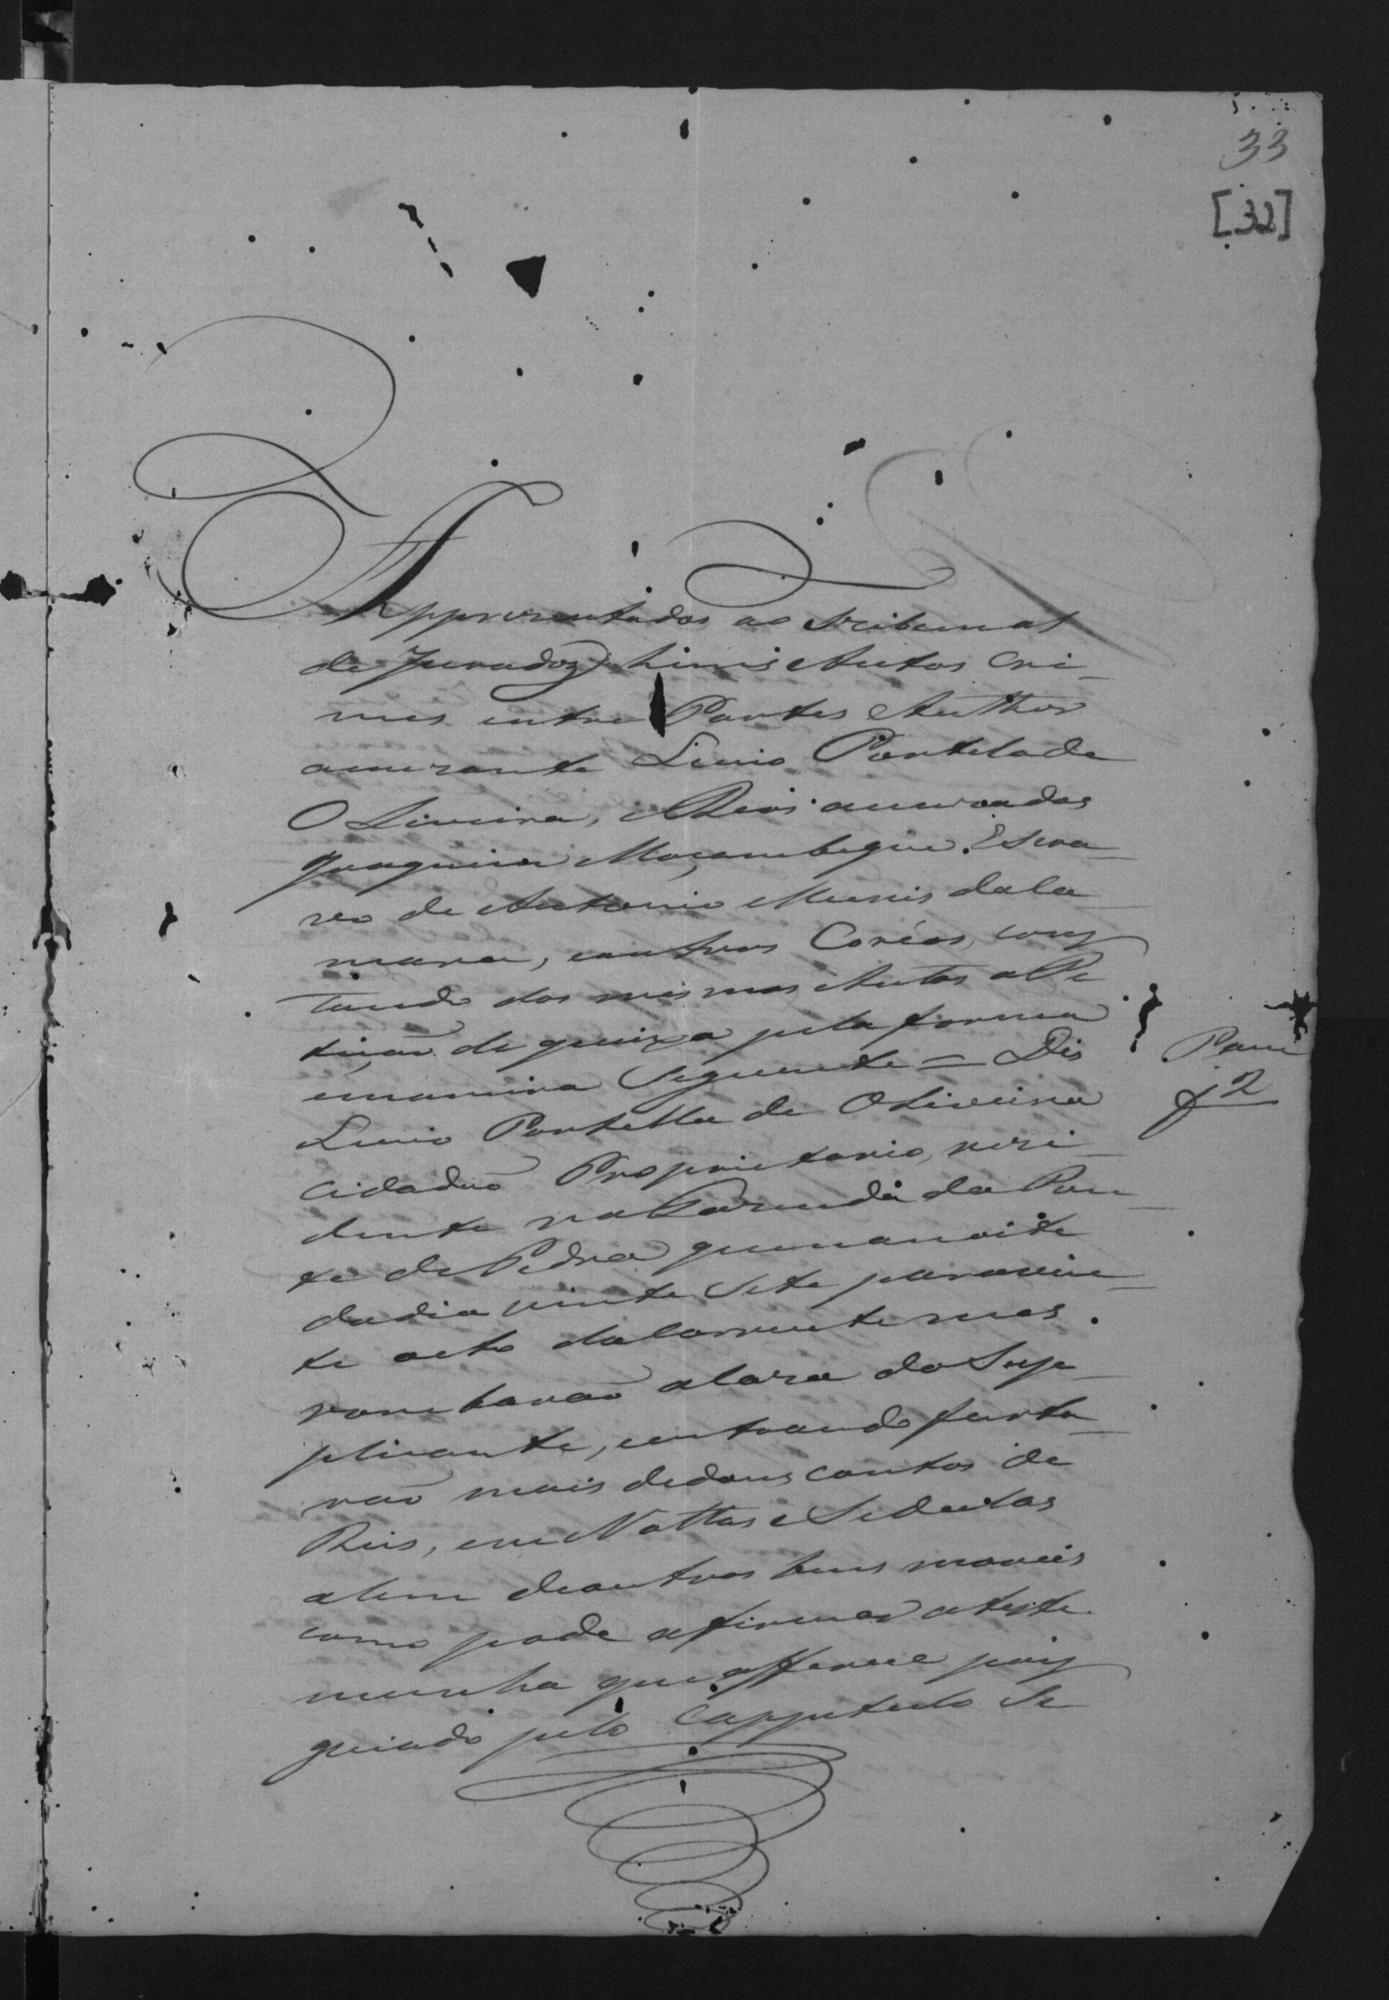 33
[32]
Appresentados ao Tribunal
de Jurados huns Autos Cri-
mes entre Partes Author
accuzante Livio Portela de
Oliveira, e Reos accuzados
Joaquim Moçambique Escra-
vo de Antonio Munis da Ca-
mara, e outros Coréos, cons
tando dos mesmos Autos a Pe
tição de queixa pela forma
e maneira Seguinte = Dis
Livio Portella de Oliveira
Cidadão Proprietario, rezi-
dente na Fazenda da Pon-
te de Pedra que na noite
do dia vinte Sete para vin-
te oito do Corrente mes.
rombarão a Caza do Sup-
plicante, e entrando furta-
rão mais de dous contos de
Reis, em Nottas e Sedullas
alem de outros bens moveis
como pode afirmar a teste
munha que offerece pois
guiado pelo Cappitulo Se
f 2